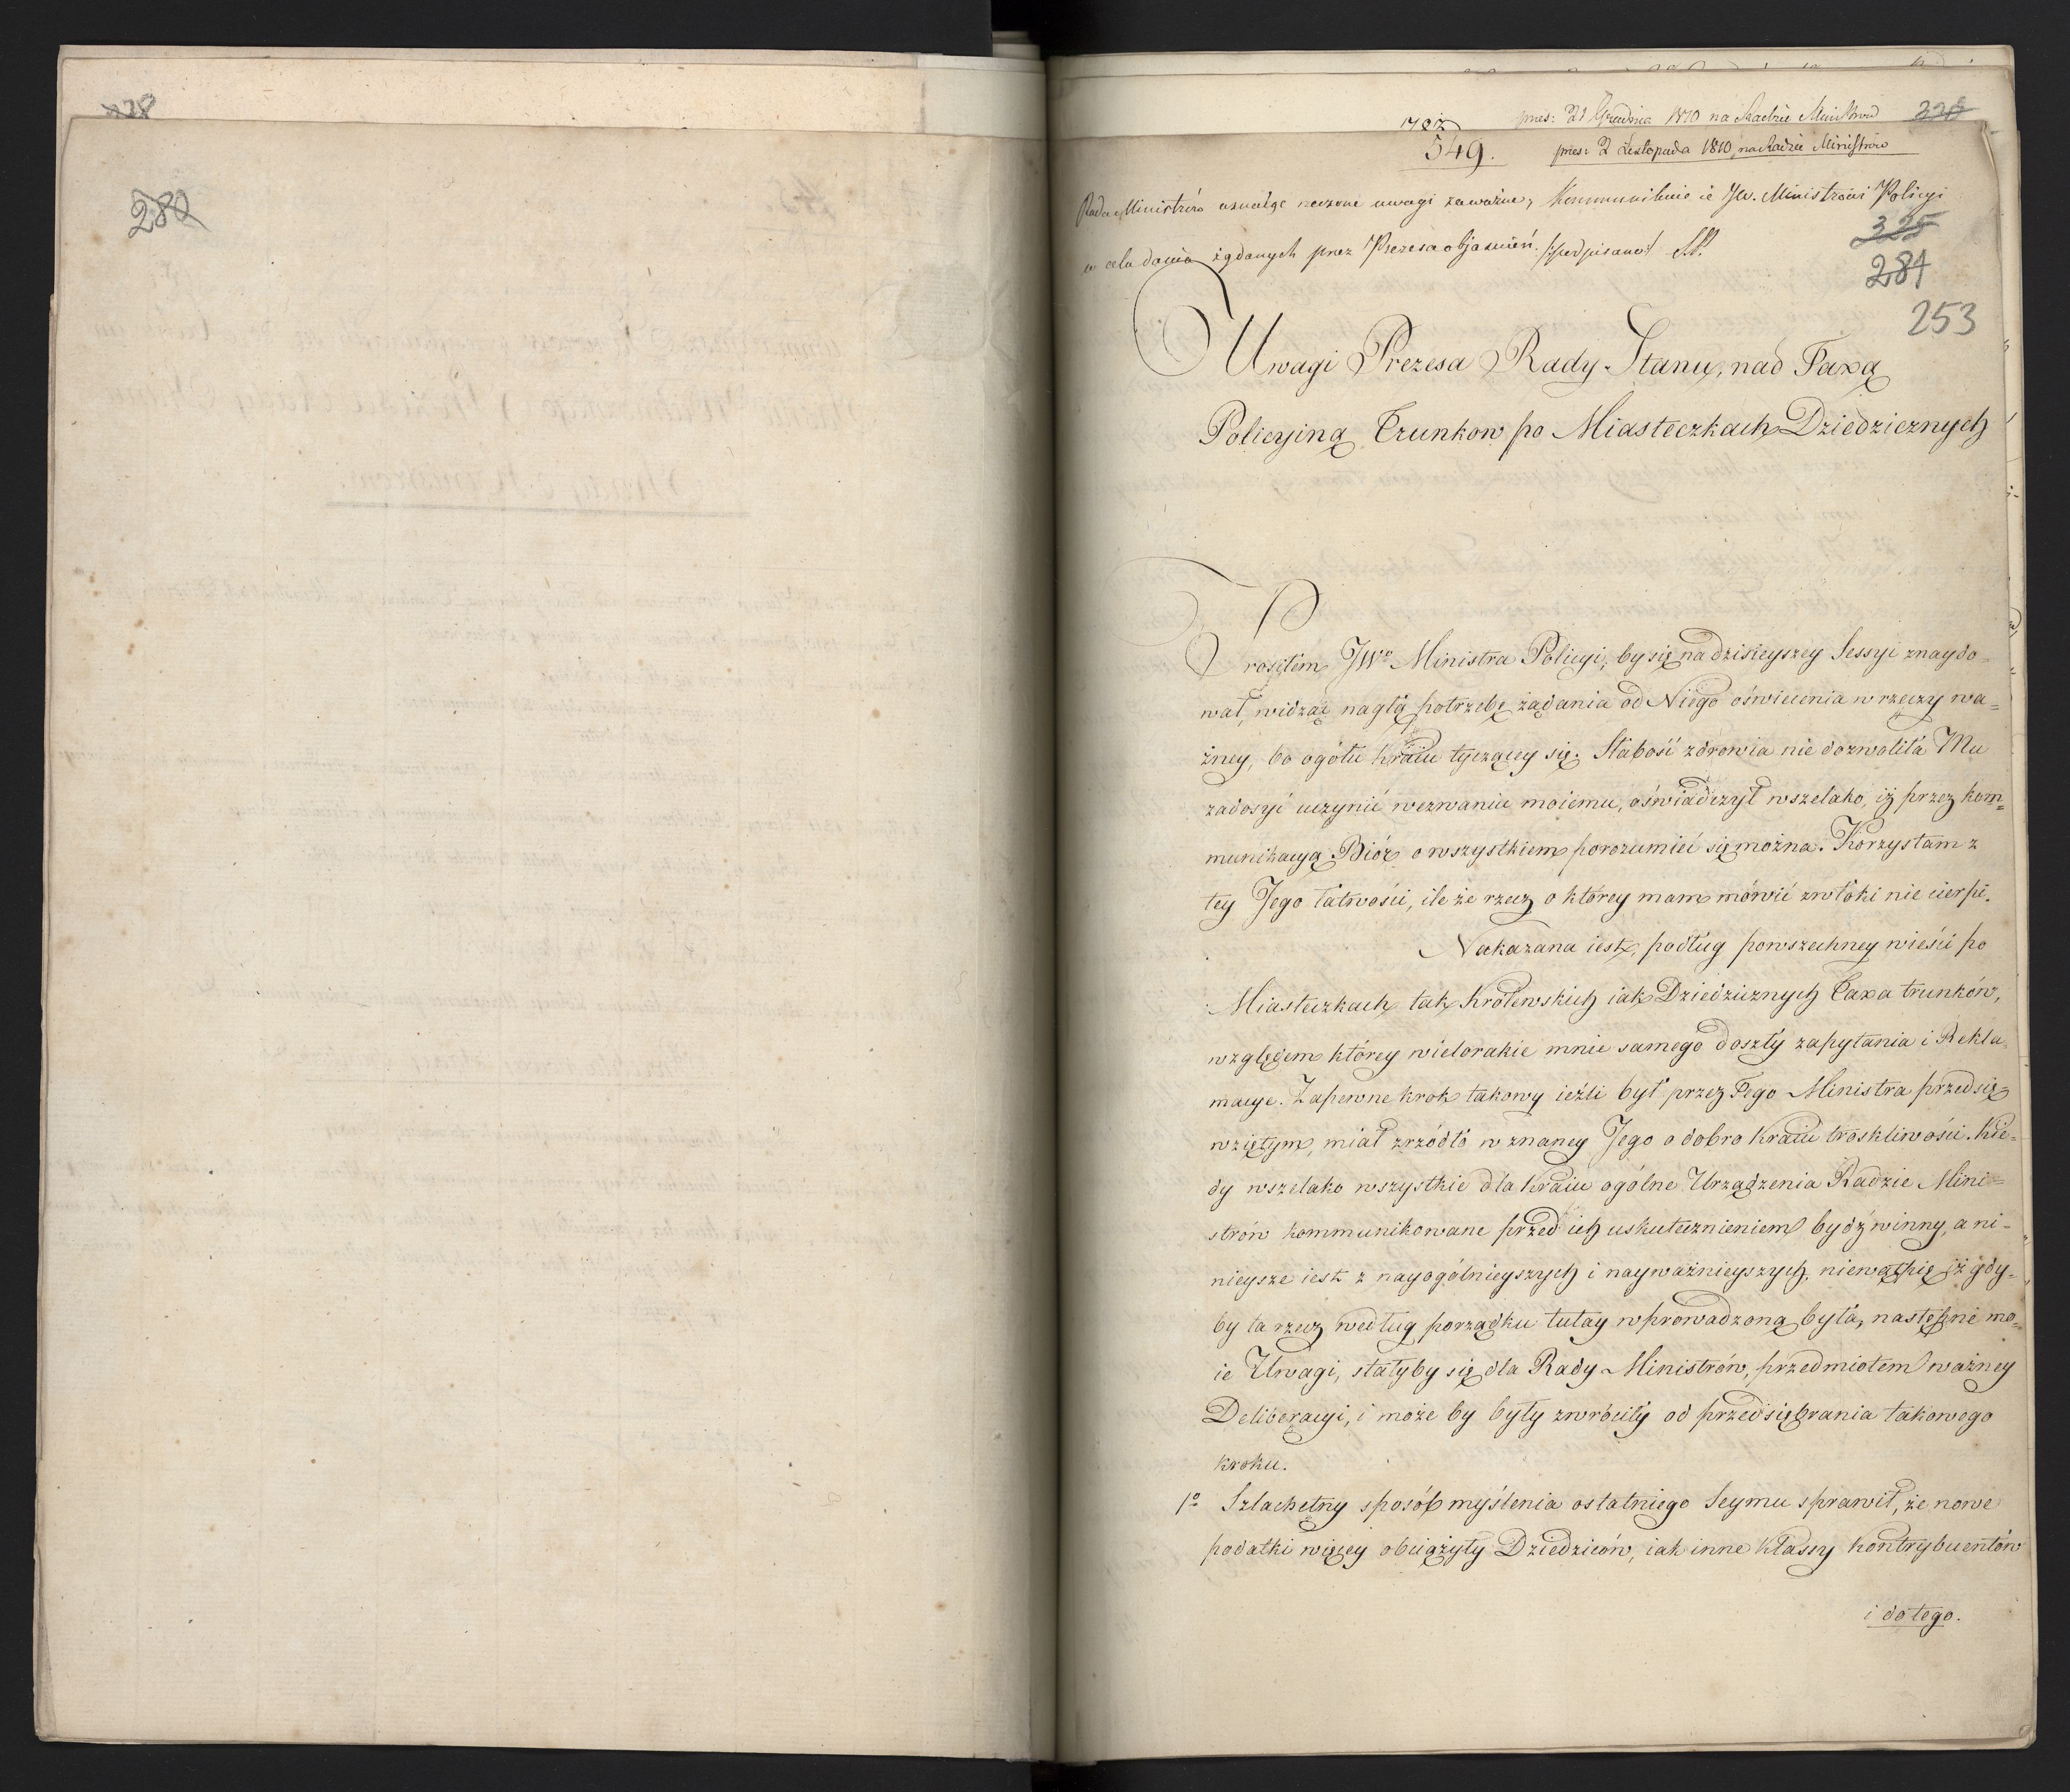 278
280
1782
pres: 21 Grudnia 1810 na Radzie Ministrów
326
549.
pres: 2 Listopada 1810, na Radzie Ministrów
Rada Ministrów uznaiąc rzeczone uwagi za ważne, kommunikuie ie JW. Ministrowi Policyi
w celu dania żądanych przez Prezesa objaśnień. /:podpisano:/ S.P.
325
281
253
Uwagi Prezesa Rady Stanu, nad Taxą
Policyiną Trunkow po Miasteczkach Dziedzicznych
Prosiłem JWo Ministra Policyi, by się na dzisieyszey Sessyi znaydo=
wał, widząc nagłą potrzebę żądania od Niego oświecenia w rzeczy wa=
żney, bo ogółu kraiu tyczącey się. Słabość zdrowia nie dozwoliła Mu
zadosyć uczynić wezwaniu moiemu, oświadczył wszelako, iż przez kom=
munikacyą Biór o wszystkiem porozumieć się można. Korzystam z
tey Jego łatwości, ile że rzecz o którey mam mówić zwłoki nie cierpi.
Nakazana iest, podług powszechney wieści po
Miasteczkach tak Królewskich iak Dziedzicznych Taxa trunków,
względem którey wielorakie mnie samego doszły zapytania i Rekla=
macye. Zapewne krok takowy ieźli był przez Tego Ministra przedsię=
wziętym, miał zrzódło w znaney Jego o dobro kraiu troskliwości. Kie=
dy wszelako wszystkie dla kraiu ogólne Urządzenia Radzie Mini=
strów kommunikowane przed ich uskutecznieniem bydź winny, a ni=
nieysze iest z nayogólnieyszych i nayważnieyszych, niewątpię iż gdy=
by ta rzecz według porządku tutay wprowadzoną była, nastepne mo=
ie Uwagi, stałyby się dla Rady Ministrów, przedmiotem ważney
Deliberacyi, i może by były zwróciły od przedsiębrania takowego
kroku.
1o Szlachetny sposób myślenia ostatniego Seymu sprawił, że nowe
podatki więcey obciążyły Dziedziców, iak inne klassy kontrybuentów
i do tego.